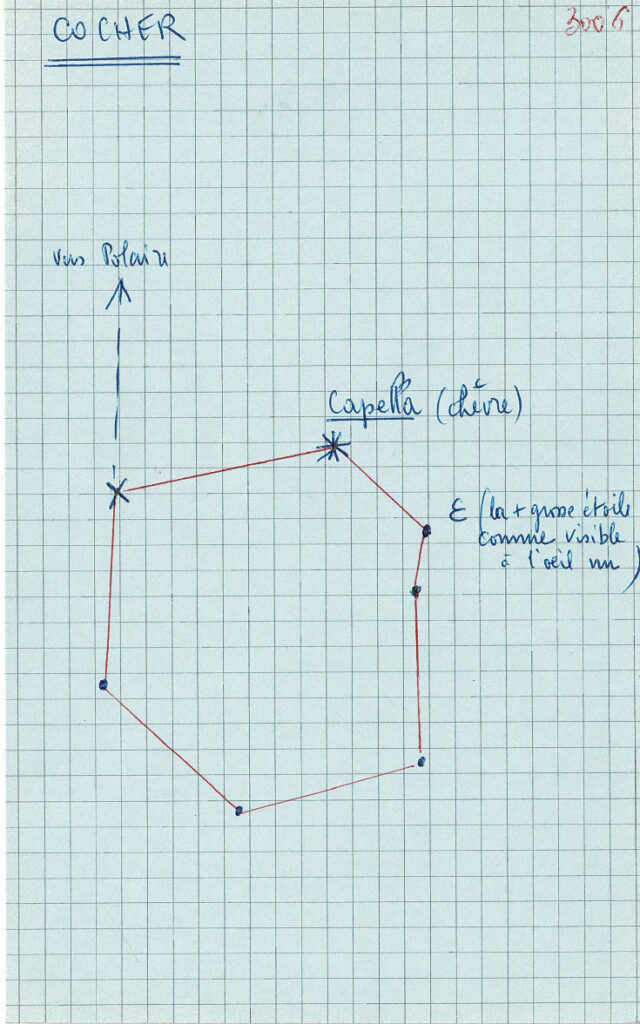 COCHER
3006
vers Polaire
Capella (chèvre)
ε (la + grosse étoile
connue visible
à l'oeil nu)